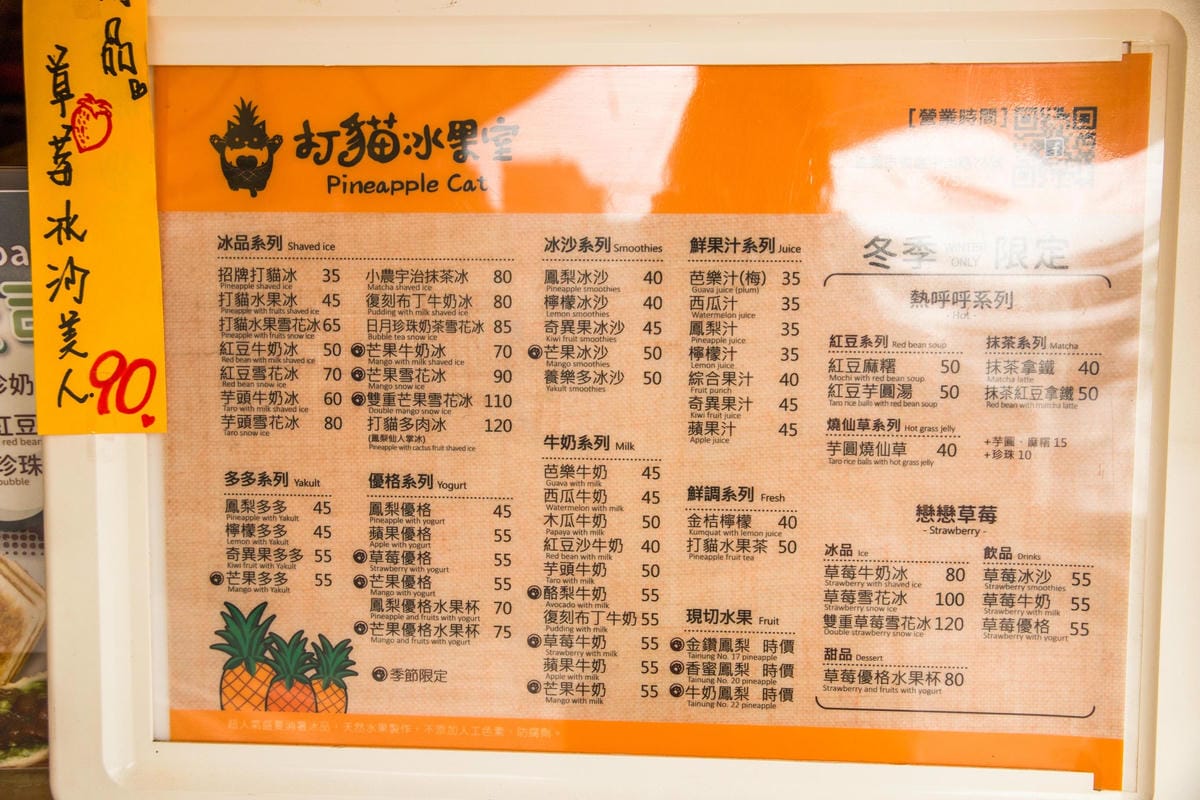 品
草莓冰沙美人
90
打貓冰果室
Pineapple Cat
[營業時間]
冰品系列 Shaved ice
招牌打貓冰 35
Pineapple shaved ice
打貓水果冰 45
Pineapple with fruits shaved ice
打貓水果雪花冰 65
Pineapple with fruits snow ice
紅豆牛奶冰 50
Red bean with milk shaved ice
紅豆雪花冰 70
Red bean snow ice
芋頭牛奶冰 60
Taro with milk shaved ice
芋頭雪花冰 80
Taro snow ice
小農宇治抹茶冰 80
Matcha shaved ice
復刻布丁牛奶冰 80
Pudding with milk shaved ice
日月珍珠奶茶雪花冰 85
Bubble tea snow ice
芒果牛奶冰 70
Mango with milk shaved ice
芒果雪花冰 90
Mango snow ice
雙重芒果雪花冰 110
Double mango snow ice
打貓多肉冰 120
(鳳梨仙人掌冰)
Pineapple with cactus fruit shaved ice
多多系列 Yakult
鳳梨多多 45
Pineapple with Yakult
檸檬多多 45
Lemon with Yakult
奇異果多多 55
Kiwi fruit with Yakult
芒果多多 55
Mango with Yakult
優格系列 Yogurt
鳳梨優格 45
Pineapple with yogurt
蘋果優格 55
Apple with yogurt
草莓優格 55
Strawberry with yogurt
芒果優格 55
Mango with yogurt
鳳梨優格水果杯 70
Pineapple and fruits with yogurt
芒果優格水果杯 75
Mango and fruits with yogurt
季節限定
冰沙系列 Smoothies
鳳梨冰沙 40
Pineapple smoothies
檸檬冰沙 40
Lemon smoothies
奇異果冰沙 45
Kiwi fruit smoothies
芒果冰沙 50
Mango smoothies
養樂多冰沙 50
Yakult smoothies
牛奶系列 Milk
芭樂牛奶 45
Guava with milk
西瓜牛奶 45
Watermelon with milk
木瓜牛奶 50
Papaya with milk
紅豆沙牛奶 40
Red bean with milk
芋頭牛奶 50
Taro with milk
酪梨牛奶 55
Avocado with milk
復刻布丁牛奶 55
Pudding with milk
草莓牛奶 55
Strawberry with milk
蘋果牛奶 55
Apple with milk
芒果牛奶 55
Mango with milk
鮮果汁系列 Juice
芭樂汁(梅) 35
Guava juice (plum)
西瓜汁 35
Watermelon juice
鳳梨汁 35
Pineapple juice
檸檬汁 35
Lemon juice
綜合果汁 40
Fruit punch
奇異果汁 45
Kiwi fruit juice
蘋果汁 45
Apple juice
鮮調系列 Fresh
金桔檸檬 40
Kumquat with lemon juice
打貓水果茶 50
Pineapple fruit tea
現切水果 Fruit
金鑽鳳梨 時價
Tainung No. 17 pineapple
香蜜鳳梨 時價
Tainung No. 20 pineapple
牛奶鳳梨 時價
Tainung No. 22 pineapple
冬季 WINTER ONLY 限定
熱呼呼系列
- Hot -
紅豆系列 Red bean soup
紅豆麻糬 50
Mochi with red bean soup
紅豆芋圓湯 50
Taro rice balls with red bean soup
燒仙草系列 Hot grass jelly
芋圓燒仙草 40
Taro rice balls with hot grass jelly
抹茶系列 Matcha
抹茶拿鐵 40
Matcha latte
抹茶紅豆拿鐵 50
Red bean with matcha latte
+芋圓、麻糬 15
+珍珠 10
戀戀草莓
- Strawberry -
冰品 Ice
草莓牛奶冰 80
Strawberry with shaved ice
草莓雪花冰 100
Strawberry snow ice
雙重草莓雪花冰 120
Double strawberry snow ice
甜品 Dessert
草莓優格水果杯 80
Strawberry and fruits with yogurt
飲品 Drinks
草莓冰沙 55
Strawberry smoothies
草莓牛奶 55
Strawberry with milk
草莓優格 55
Strawberry with yogurt
超人氣盛夏消暑冰品，天然水果製作，不添加人工色素、防腐劑。
珍奶
紅豆
red bean
珍珠
bubble